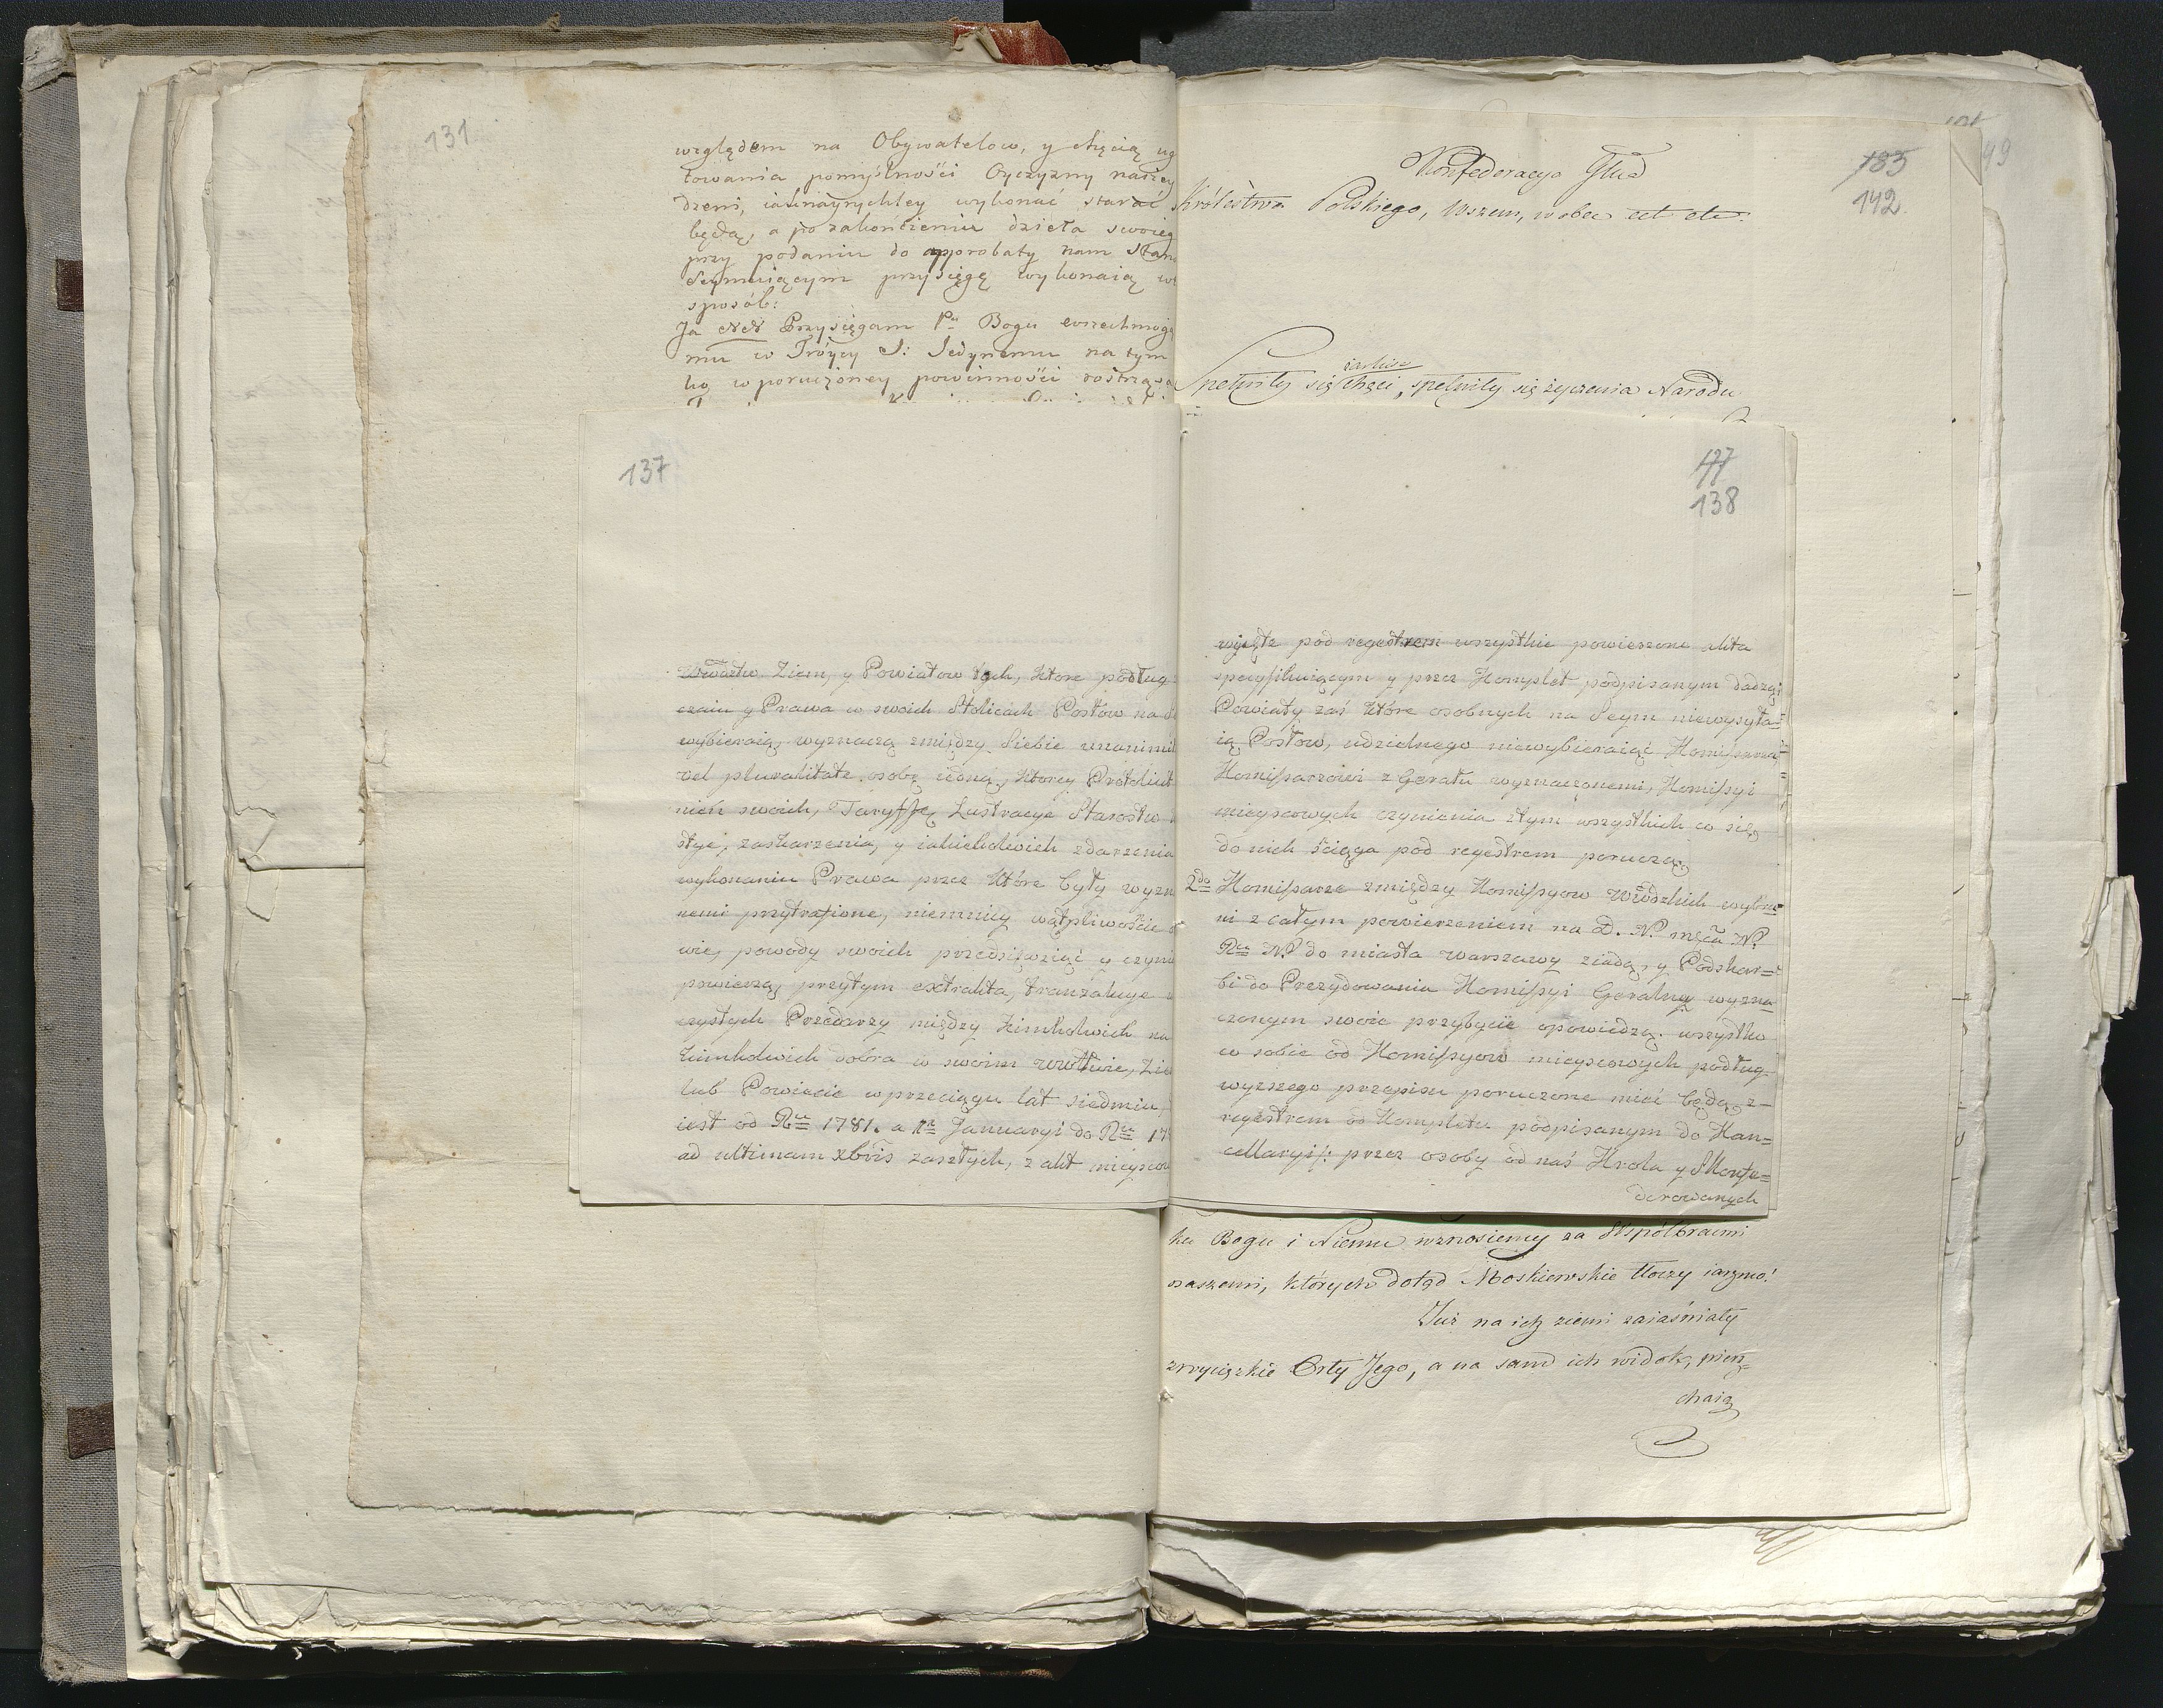 131
względem na Obywatelow, y chęcią ug
towania pomyślności Oyczyzny naszey
dzeni, iaknayrychley wykonać starać
będą, a po zakończeniu dzieła swoieg
przy podaniu do approbaty nam Stan
Seymuiącym przysięgę wykonaią
sposób:
Ja NN Przysięgam Pu Bogu wszechmogą
mu w Tróycy S: Jedynemu na tym
w poruczoney powinności roztrząsa
137
Wdztw Ziem, y Powiatow tych, ktore podług
czaiu y Prawa w swoich Stolicach Posłow na
wybieraią, wyznaczą zmiędzy siebie unanimit
vel pluralitate osobę iedną, ktorey Protokuł
nich swoich, Taryffę Lustracye Starostw
stye, zaskarzenia, y iakichkolwiek zdarzenia
wykonaniu Prawa przez które były wyzn
nemi przytrafione, niemniey wątpliwoście
wie, powody swoich przedsięwzięć y czynn
powierzą, przytym extrakta, tranzakcye
czystych Przedarzy między kimkolwiek na
kimkolwiek dobra w swoim Wwdztwie, Zie
lub Powiecie w przeciągu lat siedmiu,
iest od Ru 1781. a 1a Januaryi do Ru 17
ad ultimam Xbris zaszłych, z akt mieyscow
183
142
49
Konfederacya Głna
Królestwa Polskiego, Wszem, wobec ect etc.
iuż
Spełniły się chęci, spełniły się życzenia Narodu
177
138
wyięte pod regestrem wszystkie powierzone akta
specyfikuiącym y przez Komplet podpisanym dadzą
Powiaty zaś które osobnych na Seym niewysyła=
ią Posłow, udzielnego niewybieraiąc Komissarza,
Komissarzowi z Gerału wyznaczonemu, Komissyi
mieyscowych czynienia z tym wszystkich co się
do nich ściąga pod regestrem poruczą
2do Komissarze zmiędzy Komissyow Wwdzkich wybra=
ni z całym powierzeniem na D. N. mca N.
Ru N. do miasta Warszawy ziadą, y Podskar=
bi do Prezydowania Komissyi Geralney wyzna
czonym swoie przybycie opowiedzą. wszystko
co sobie od Komissyow mieyscowych podług
wyzszego przepisu poruczone mieć będą z=
regestrem od Kompletu podpisanym do Kan=
cellaryi: przez osoby od nas Krola y Skonfe=
derowanych
ku Bogu i Niemu wznosiemy za Współbraćmi
naszemi, których dotąd Moskiewskie tłoczy iarzmo!
Już na ich ziemi zaiaśniały
zwycięzkie Orły Jego, a na sam ich widok, pierz=
chaią